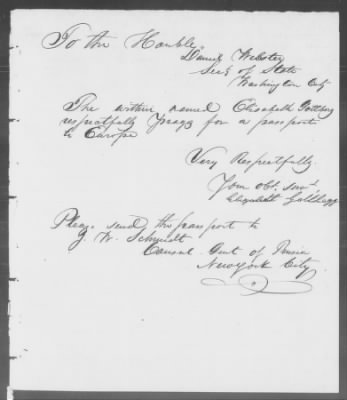 To the Honble.
Daniel Webster
Secy of State
Washington City
The within named Elisabeth
respectfully prays for a passport
to Europe
Very Respectfully.
Your obt. servt.
Elizabeth
Please send the passport to
J. W. Schmidt
Consul Genl of Prussia
New York City.